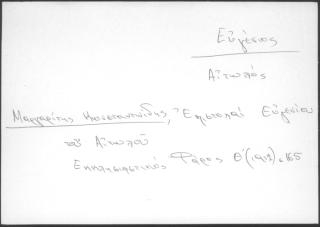 Εὐγένιος
Αἰτωλός
Μαργαρίτης Κωνσταντινίδης, Ἐπιστολαὶ Εὐγενίου
τοῦ Αἰτωλοῦ
Ἐκκλησιαστικὸς Φάρος Θ΄ (1912), 165